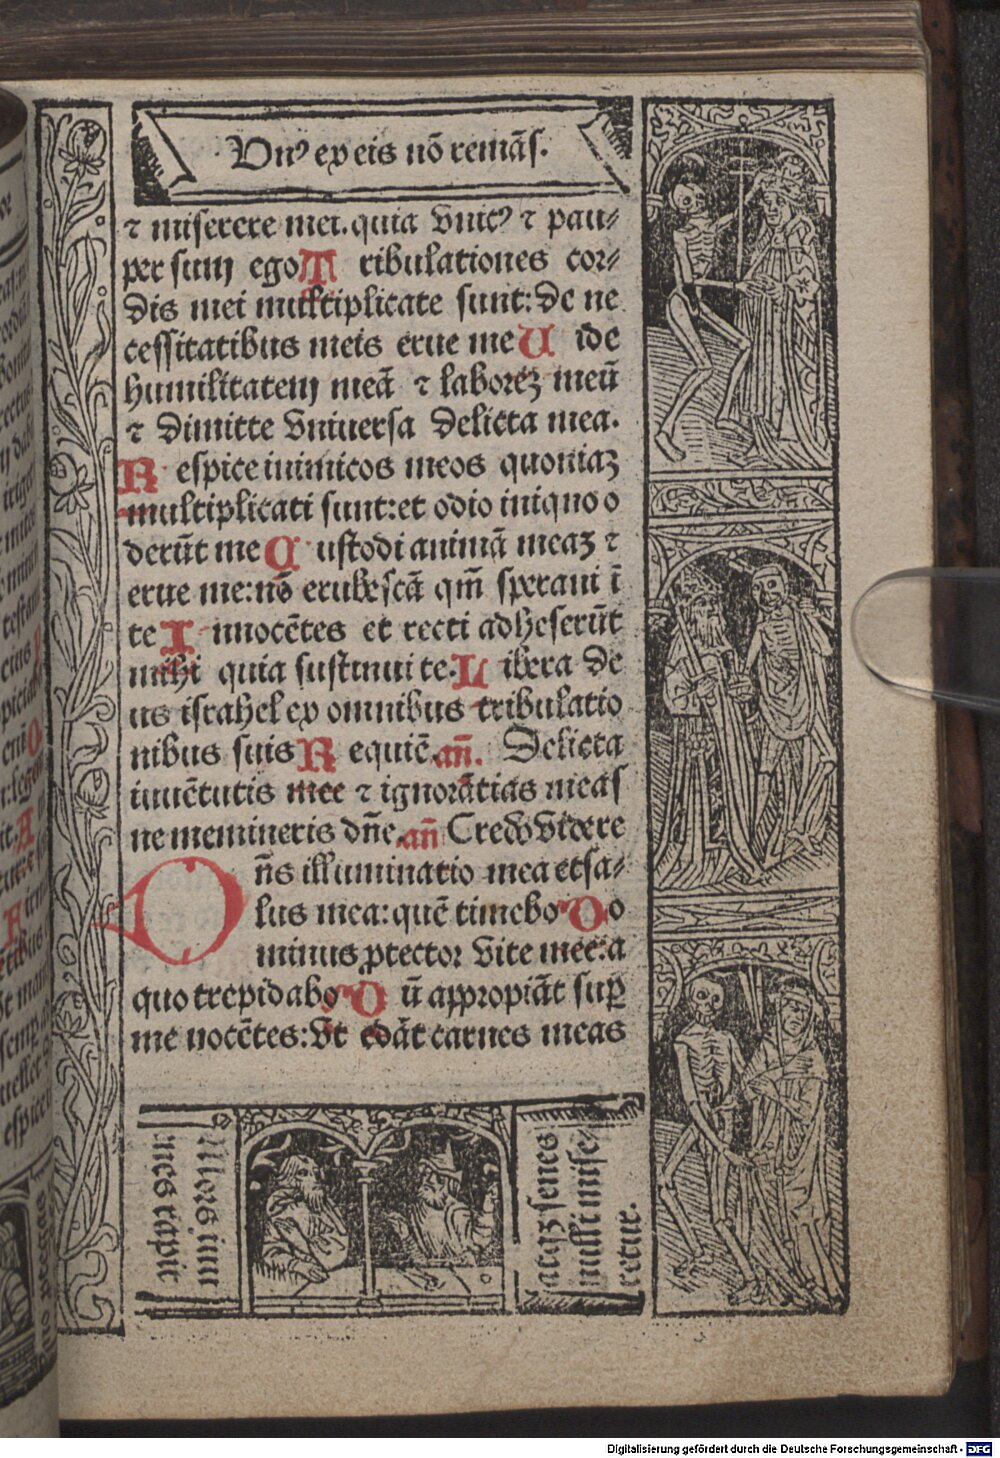 Vnꝰ ex eis nō remāſ.
⁊ miſerere mei. quia vnicꝰ ⁊ pau⸗
per ſum ego Tribulationes cor⸗
dis mei multiplicate ſunt: de ne
ceſſitatibus meis erue me Uide
humilitatem meā ⁊ laborēꝫ meū
⁊ dimitte vniuerſa delicta mea.
Reſpice inimicos meos quoniaꝫ
multiplicati ſunt: et odio iniquo o
derūt me Cuſtodi animā meaꝫ ⁊
erue me: nō erubeſcā qm̄ ſperaui ī
te Innocētes et recti adheſerūt
mihi quia ſuſtinui te. Libera de
us iſrahel ex omnibus tribulatio
nibus ſuis Requiē. añ. Delicta
iuuētutis mee ⁊ ignorātias meaſ
ne memineris dn̄e. añ Credo videre
Dn̄s illuminatio mea et ſa⸗
lus mea: quē timebo Do
minus ꝓtector vite mee: a
quo trepidabo Dū appropiāt ſuꝑ
me nocētes: vt edāt carnes meas
Mors iuu
enes rapit
atqꝫ ſenes
nulli miſe
retur.
Digitalisierung gefördert durch die Deutsche Forschungsgemeinschaft - DFG